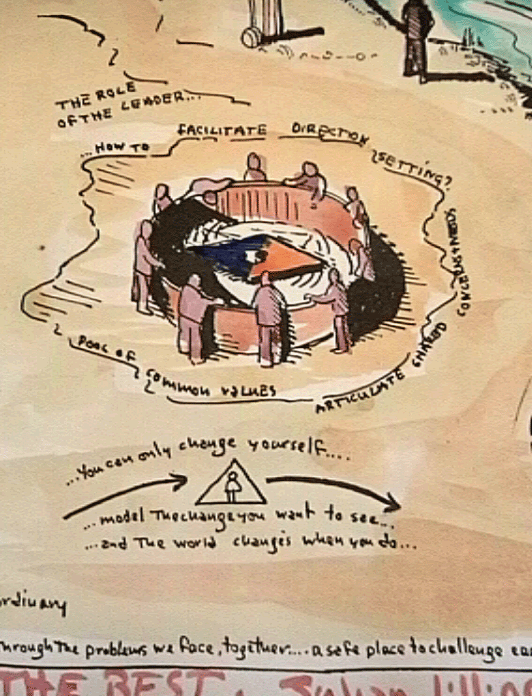 THE ROLE
OF THE LEADER...
...HOW TO FACILITATE DIRECTION SETTING?
ARTICULATE SHARED CONCERNS & NEEDS
POOL OF COMMON VALUES
...You can only change yourself....
...model The change you want to see...
...and The world changes when you do...
rdinary
hrough The problems we face, together.... a safe place to challenge eac
THE BEST.